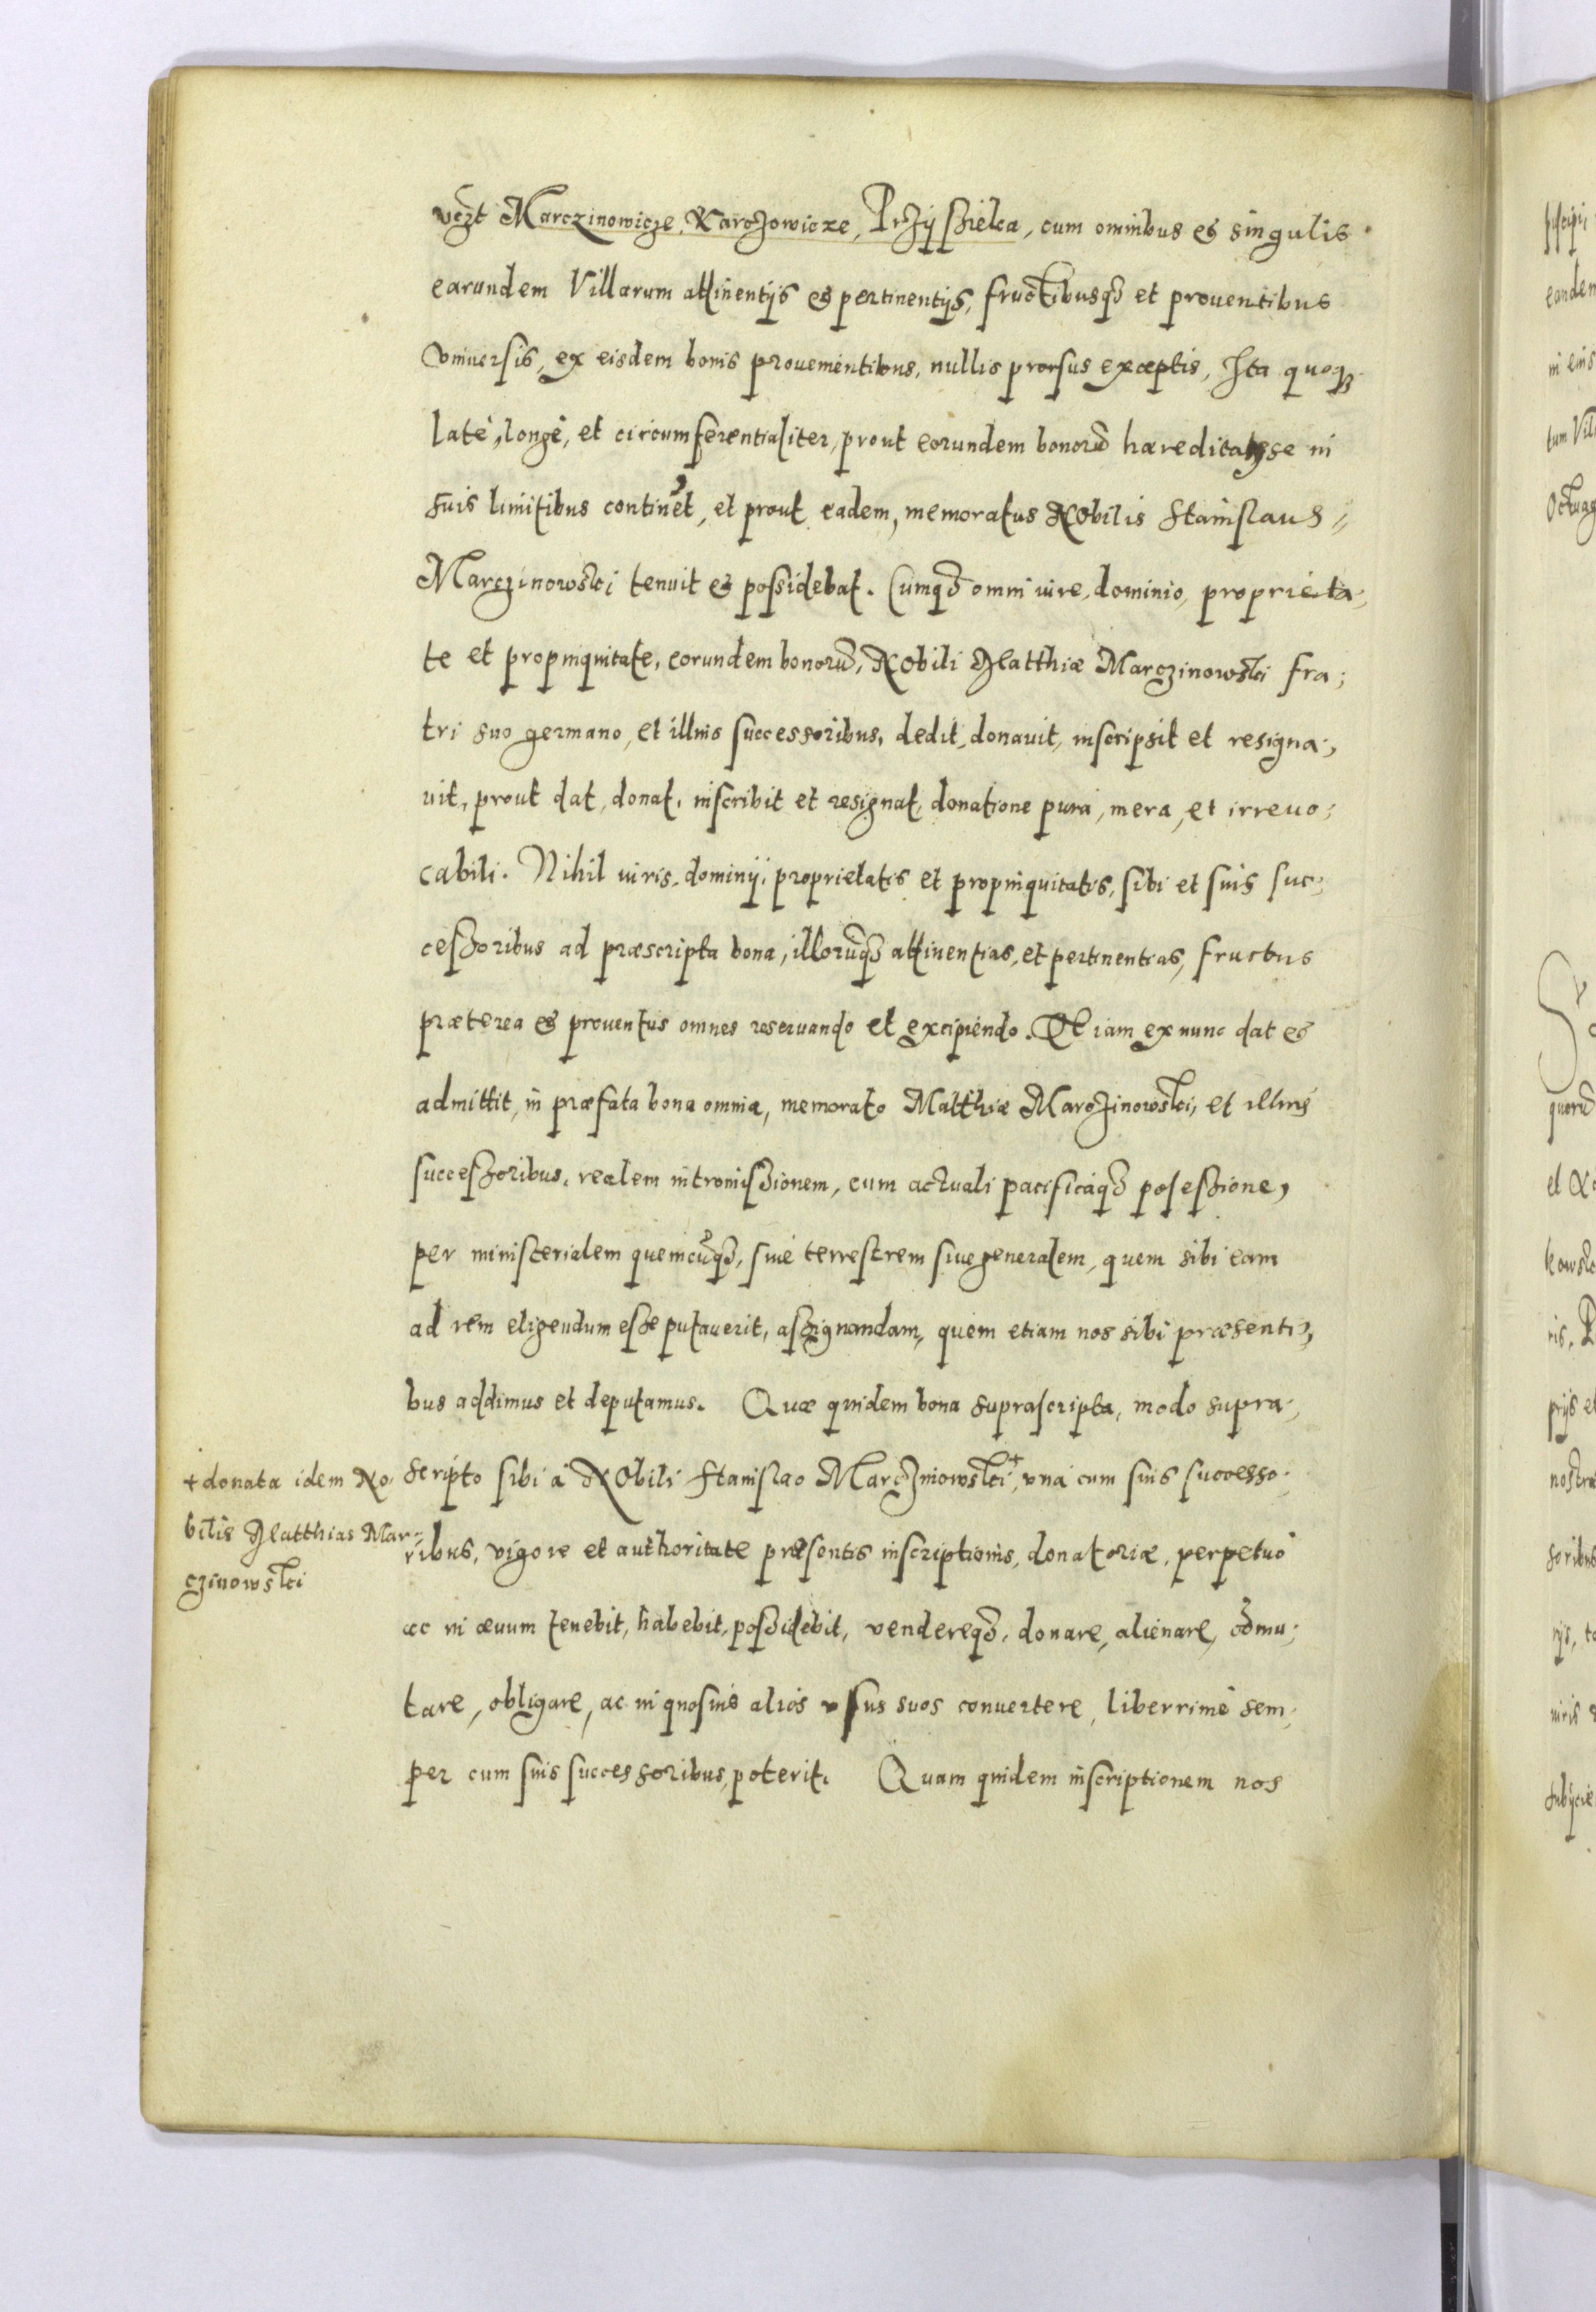 vczt Marczinowicze, Karczowicze, Przÿszielca, cum omnibus et singulis
earundem Villarum attinentijs et pertinentijs, fructibusq̃ et prouentibus
vniuersis, ex eisdem bonis prouenientibus, nullis prorsus exceptis, Ita quoq;
latè, longè, et circumferentialiter, prout eorundem bonorũ hæreditas se in
suis limitibus continet, et prout eadem, memoratus Nobilis Stanislaus
Marczinowski tenuit et possidebat. Cumq̃ omni iure, dominio, proprieta-
te et propinquitate, eorundem bonorũ, Nobili Matthiæ Marczinowski fra-
tri suo germano, et illius successoribus, dedit, donauit, inscripsit et resigna-
uit, prout dat, donat, inscribit et resignat, donatione pura, mera, et irreuo-
cabili. Nihil iuris, dominij, proprietatis et propinquitatis, sibi et suis suc-
cessoribus ad præscripta bona, illorũq̃ attinentias, et pertinentias, fructus
præterea et prouentus omnes reseruando et excipiendo. Et iam ex nunc dat et
admittit, in præfata bona omnia, memorato Matthiæ Marczinowski, et illius
successoribus, realem intromissionem, cum actuali pacificaq̃ possessione,
per ministerialem quemcũq̃, siue terrestrem siue generalem, quem sibi eam
ad rem eligendum esse putauerit, assignandam, quem etiam nos sibi præsenti-
bus addimus et deputamus. Quæ quidem bona suprascripta, modo supra-
scripto sibi à Nobili Stanislao Marcziniowski + vnà cum suis successo-
+ donata idem No-
bilis Matthias Mar-
czinowski
ribus, vigore et authoritate præsentis inscriptionis, donatoriæ, perpetuò
ac in æuum tenebit, habebit, possidebit, vendereq̃, donare, alienare, cõmu-
tare, obligare, ac in quosuis alios vsus suos conuertere, liberrimè sem-
per cum suis successoribus, poterit. Quam quidem inscriptionem nos